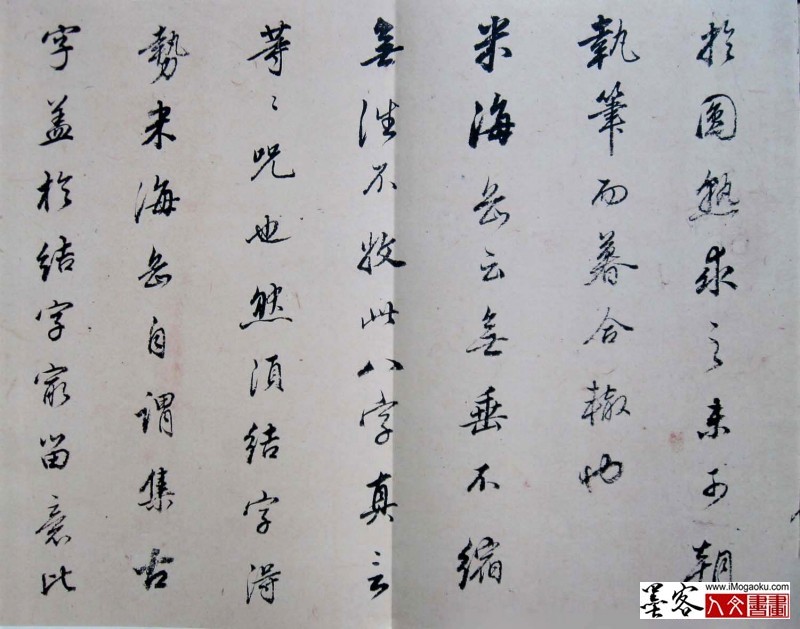 於圓熟求之未可朝
執筆而暮合轍也
米海岳云無垂不縮
無往不收此八字真言
等〻咒也然須結字得
勢米海岳自謂集古
字盖於結字最留意比
墨客
www.iMogaoku.com
人文書畫